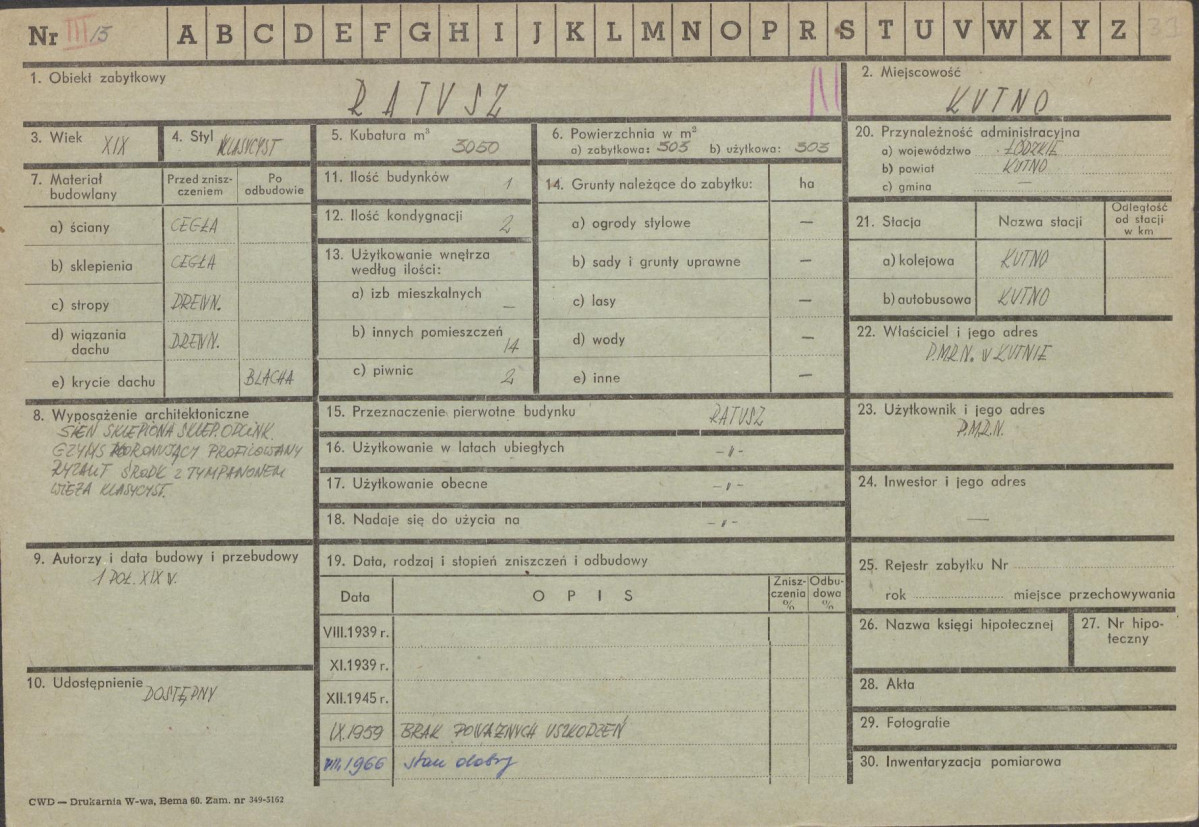 Nr III/15 A B C D E F G H I J K L M N O P R S T U V W X Y Z 31
1. Obiekt zabytkowy
RATUSZ
2. Miejscowość
KUTNO
3. Wiek XIX
4. Styl KLASYCYST
5. Kubatura m³ 3050
6. Powierzchnia w m²
a) zabytkowa: 303 b) użytkowa: 303
20. Przynależność administracyjna
a) województwo ŁÓDZKIE
b) powiat KUTNO
c) gmina —
7. Materiał budowlany
Przed znisz-
czeniem
Po
odbudowie
a) ściany CEGŁA
b) sklepienia CEGŁA
c) stropy DREWN.
d) wiązania
dachu DREWN.
e) krycie dachu BLACHA
11. Ilość budynków 1
12. Ilość kondygnacji 2
13. Użytkowanie wnętrza
według ilości:
a) izb mieszkalnych —
b) innych pomieszczeń 14
c) piwnic 2
14. Grunty należące do zabytku: ha
a) ogrody stylowe —
b) sady i grunty uprawne —
c) lasy —
d) wody —
e) inne —
21. Stacja Nazwa stacji
Odległość
od stacji
w km
a) kolejowa KUTNO
b) autobusowa KUTNO
22. Właściciel i jego adres
P.M.R.N. W KUTNIE
8. Wyposażenie architektoniczne
SIEŃ SKLEPIONA SKLEP. ODCINK.
GZYMS KORONUJĄCY PROFILOWANY
RYZALIT ŚRODK Z TYMPANONEM
WIEŻA KLASYCYST.
15. Przeznaczenie pierwotne budynku RATUSZ
16. Użytkowanie w latach ubiegłych -"-
17. Użytkowanie obecne -"-
18. Nadaje się do użycia na -"-
23. Użytkownik i jego adres
P.M.R.N.
24. Inwestor i jego adres
—
9. Autorzy i data budowy i przebudowy
1 POŁ. XIX W.
19. Data, rodzaj i stopień zniszczeń i odbudowy
Data OPIS
Znisz-
czenia
%
Odbu-
dowa
%
VIII.1939 r.
XI.1939 r.
XII.1945 r.
IX.1959 BRAK POWAŻNYCH USZKODZEŃ
VIII.1966 stan dobry
25. Rejestr zabytku Nr
rok miejsce przechowywania
26. Nazwa księgi hipotecznej
27. Nr hipo-
teczny
10. Udostępnienie
DOSTĘPNY
28. Akta
29. Fotografie
30. Inwentaryzacja pomiarowa
CWD — Drukarnia W-wa, Bema 60. Zam. nr 349-5162